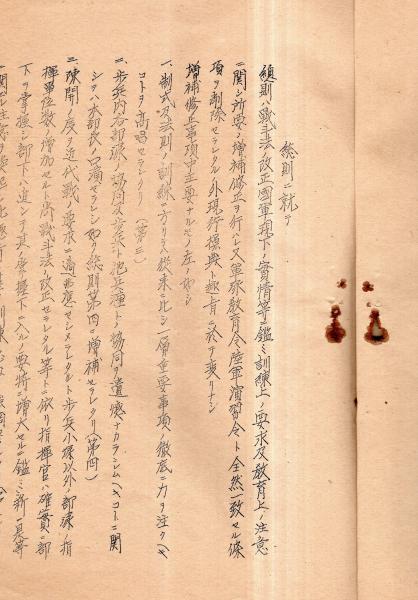 総則ニ就テ
総則ハ戦斗法ノ改正國軍現下ノ實情等ニ鑑ミ訓練上ノ要求及教育上ノ注意
ニ関シ所要ノ増補修正ヲ行ハレ又軍隊教育令陸軍演習令ト全然一致セル條
項ヲ削除セラレタル外現行操典ト趣旨ニ於テ変リナシ
増補修正事項中主要ナルモノ左ノ如シ
一、制式及法則ノ訓練ニ方リテハ従来ニ比シ一層重要事項ノ徹底ニ力ヲ注クヘキ
コトヲ高唱セラレタリ(第三)
二、歩兵内各部隊ノ協同及歩兵ト他兵種トノ協同ヲ遺憾ナカラシムヘキコトニ関
シテハ本部長ノ口演セラレシ如ク総則第四ニ増補セラレタリ(第四)
三、疎開ノ度ヲ近代戦ノ要求ニ適應セシメラレタルト歩兵小隊以外ノ部隊ノ指
揮單位数ノ増加セルト尚戦斗法ノ改正セラレタル等トニ依リ指揮官ハ確實ニ部
下ヲ掌握シ部下ハ進ンテ其ノ掌握下ニ入ルノ要特ニ増大セルニ鑑ミ新ニ其等